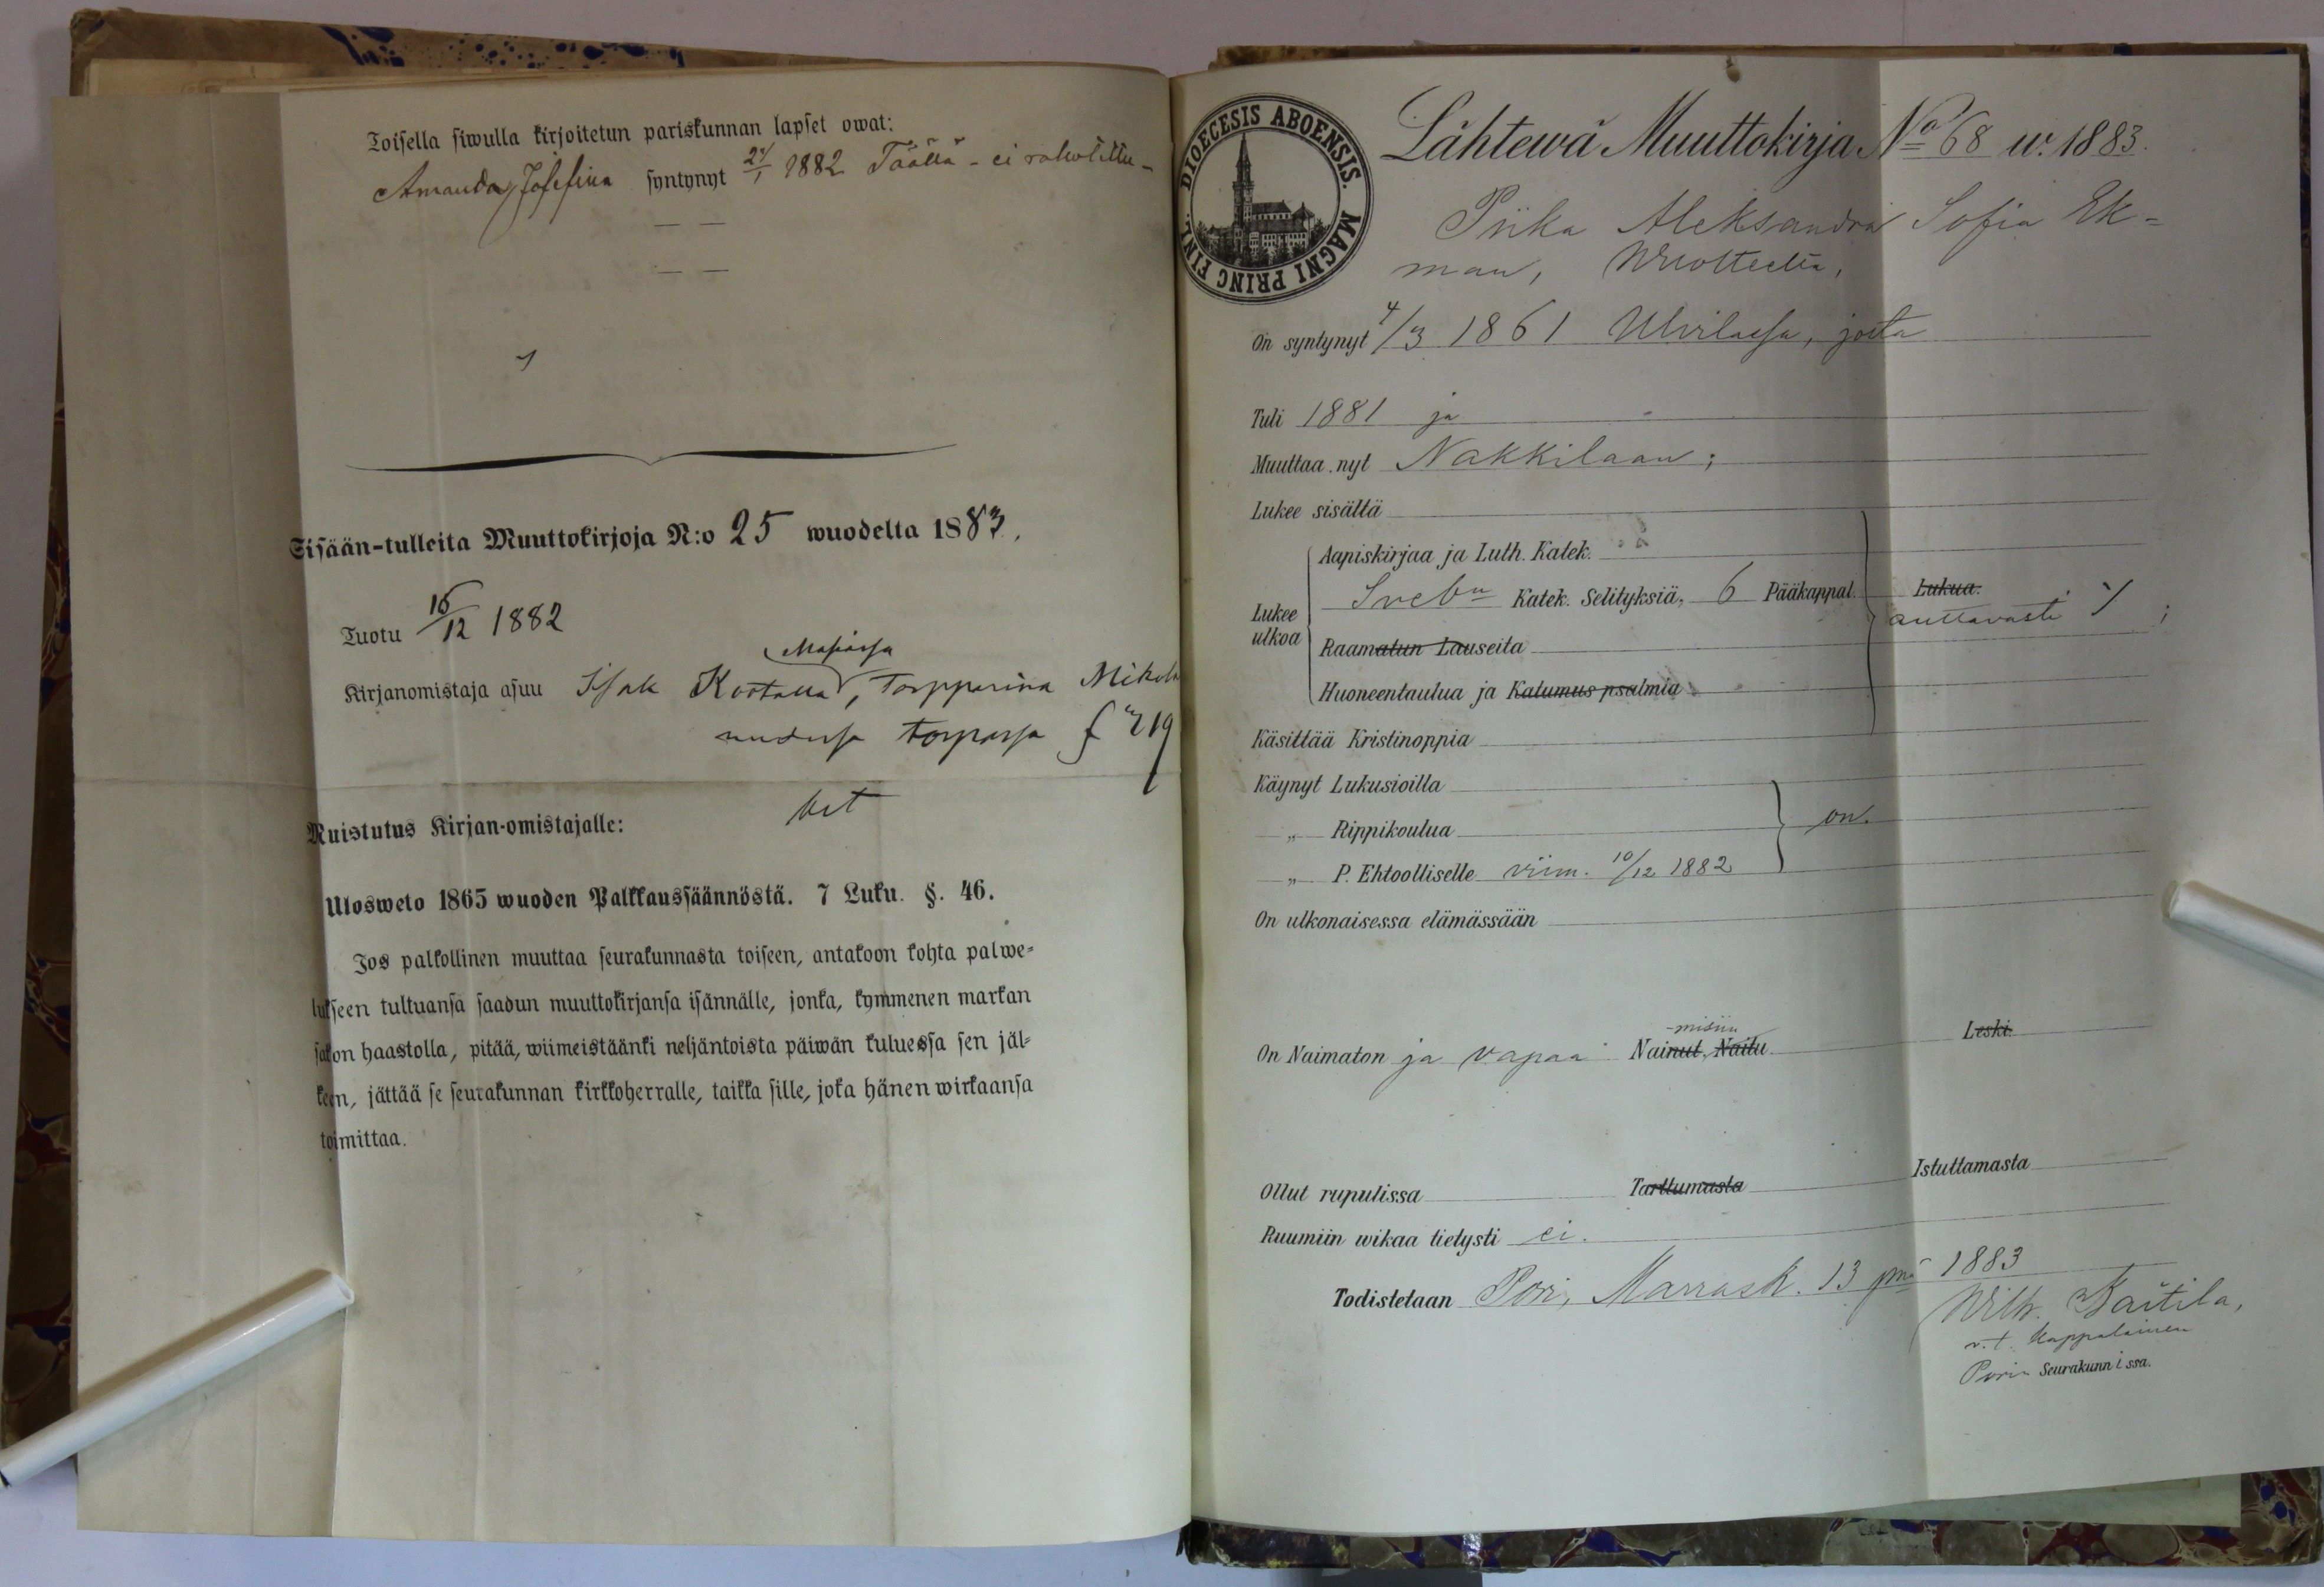 Toisella siwulla kirjoitetun pariskunnan lapset owat:
Amanda Josefina syntynyt 21/1 1882 Täällä - ei rokotettu -
Sisään-tulleita Muuttokirjoja N:o 25 wuodelta 1883.
Tuotu 15/12 1882
Kirjanomistaja asuu Isak Torpparina Mikola
torpassa
Muistutus Kirjan-omistajalle:
Ulosweto 1865 wuoden Palkkaussäännöstä. 7 Luku. §. 46.
Jos palkollinen muuttaa seurakunnasta toiseen, antakoon kohta palwe-
lukseen tultuansa saadun muuttokirjansa isännälle, jonka, kymmenen markan
sakon haastolla, pitää, wiimeistäänki neljäntoista päiwän kuluessa sen jäl-
keen, jättää se seurakunnan kirkkoherralle, taikka sille, joka hänen wirkaansa
toimittaa.
DIOECESIS ABOENSIS. MAGNI PRINC FINL.
Lähtewä Muuttokirja No 68 w. 1883.
Piika Aleksandra Sofia Ek-
man,
On syntynyt 4/3 1861 Ulvilassa, josta
Tuli 1881 ja
Muuttaa nyt Nakkilaan;
Lukee sisältä
Aapiskirjaa ja Luth. Katek.
Lukee ulkoa
Sveb:n Katek. Selityksiä, 6 Pääkappal. Lukua.
auttavasti
Raamatun Lauseita
Huoneentaulua ja Katumus psalmia
Käsittää Kristinoppia
Käynyt Lukusioilla
„ Rippikoulua on.
„ P. Ehtoolliselle viim. 10/12 1882
On ulkonaisessa elämässään
-misiin
On Naimaton ja vapaa Nainut, Naitu Leski.
Ollut rupulissa Tarttumasta Istuttamasta
Ruumiin wikaa tietysti ei.
Todistetaan Pori, Marrask. 13 pnä 1883
Wilh. Kaitila,
v.t. Kappalainen
Porin Seurakunnissa.